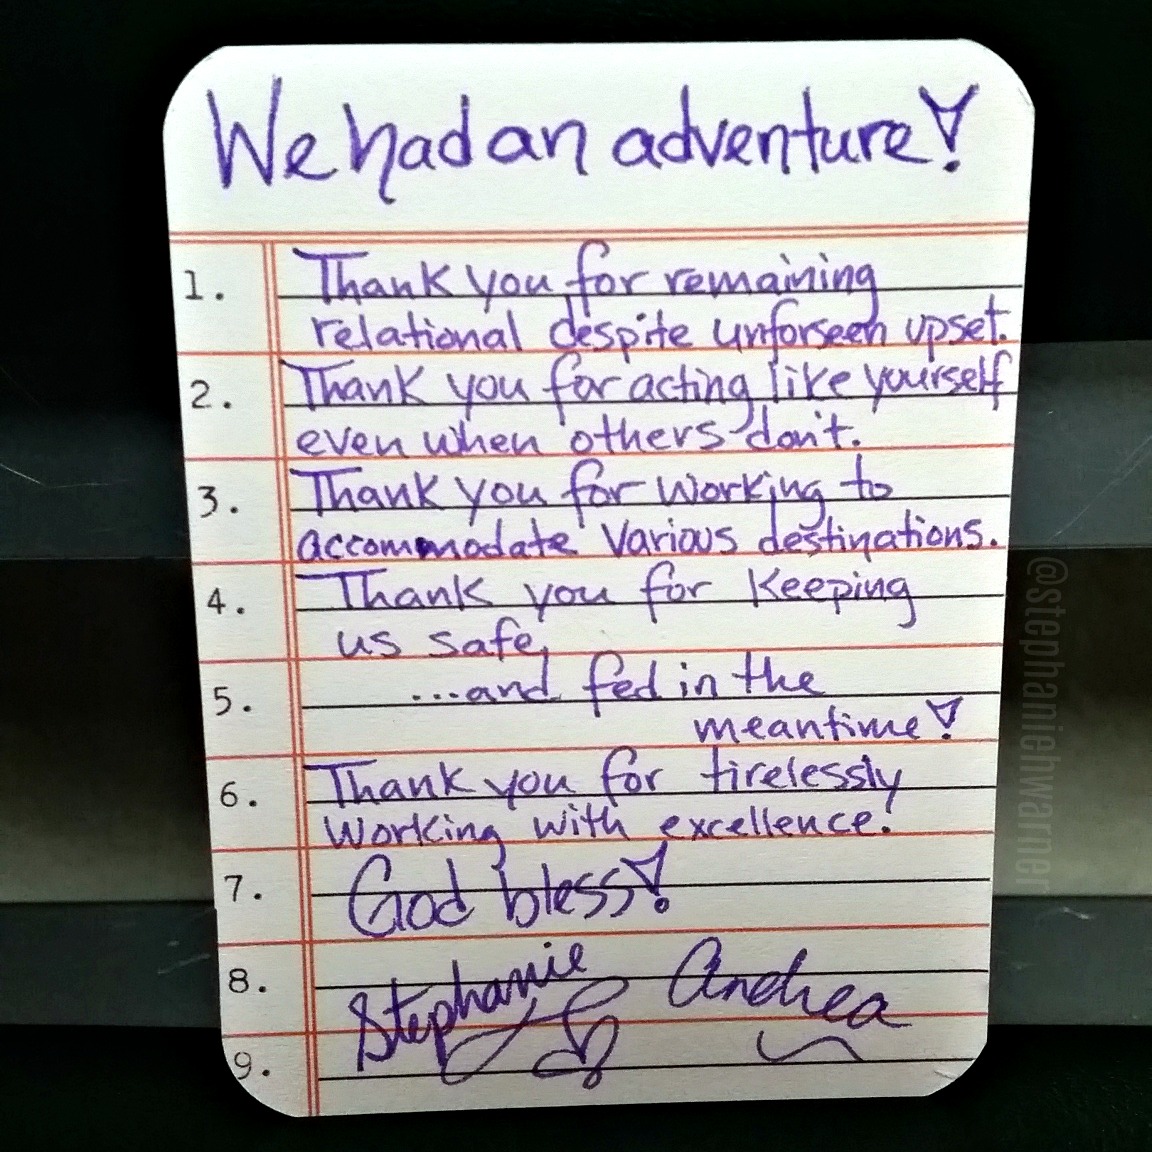 We had an adventure!
1. Thank you for remaining
relational despite unforseen upset.
2. Thank you for acting like yourself
even when others don't.
3. Thank you for working to
accommodate various destinations.
4. Thank you for keeping
us safe,
5. ...and fed in the
meantime!
6. Thank you for tirelessly
working with excellence.
7. God bless!
8. Stephanie Andrea
9.
@stephaniehwarner